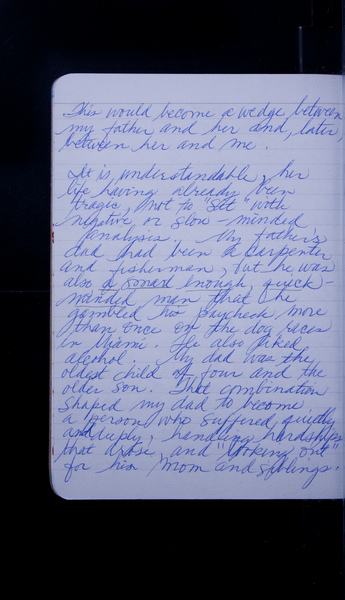 This would become a wedge between
my father and her and, later,
between her and me.
It is, understandable, her
life having already been
tragic, not to "sit" with
negative or slow-minded
analysis. My father's
dad had been a carpenter
and fisherman, but he was
also a enough, quick-
minded man that he
gambled his paycheck more
than once on the dog races
in Miami. He also liked
alcohol. My dad was the
oldest child of four and the
older son. That combination
shaped my dad to become
a person who suffered quietly
and deeply, handling hardships
that arose, and "looking out"
for his mom and siblings.